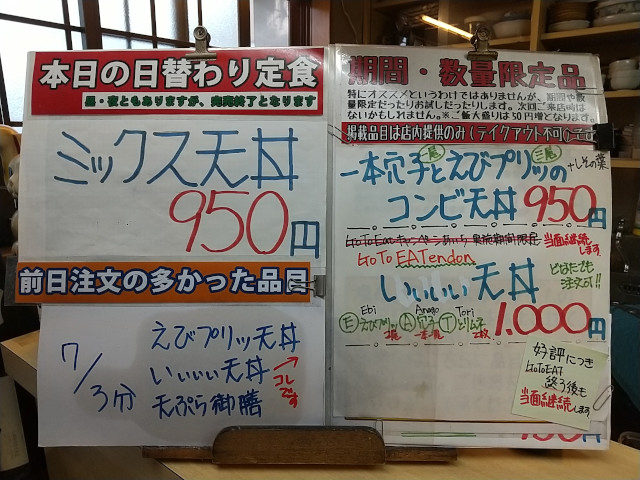 本日の日替わり定食
昼・夜ともありますが、完売終了となります
ミックス天丼
950円
前日注文の多かった品目
7/3分
えびプリッツ天丼
いいいい天丼
コレです
天ぷら御膳
期間・数量限定品
特にオススメというわけではありませんが、期間や数
量限定だったりお試しだったりします。次回ご来店時に
はないかもしれません。※ご飯大盛りは50円増となります。
掲載品目は店内提供のみ(テイクアウト不可)です
一本穴子とえびプリッツの
一尾
三尾
+しその葉
コンビ天丼 950円
GoToEatキャンペーンあいち 実施期間限定
当面継続します
GoTo EATendon
いいいい天丼
どなたでも
注文可!!
Ebi
Anago
Tori
Ⓔえびプリッツ Ⓐ穴子 Ⓣとりムネ
1,000円
好評につき
GoToEAT
終了後も
当面継続します